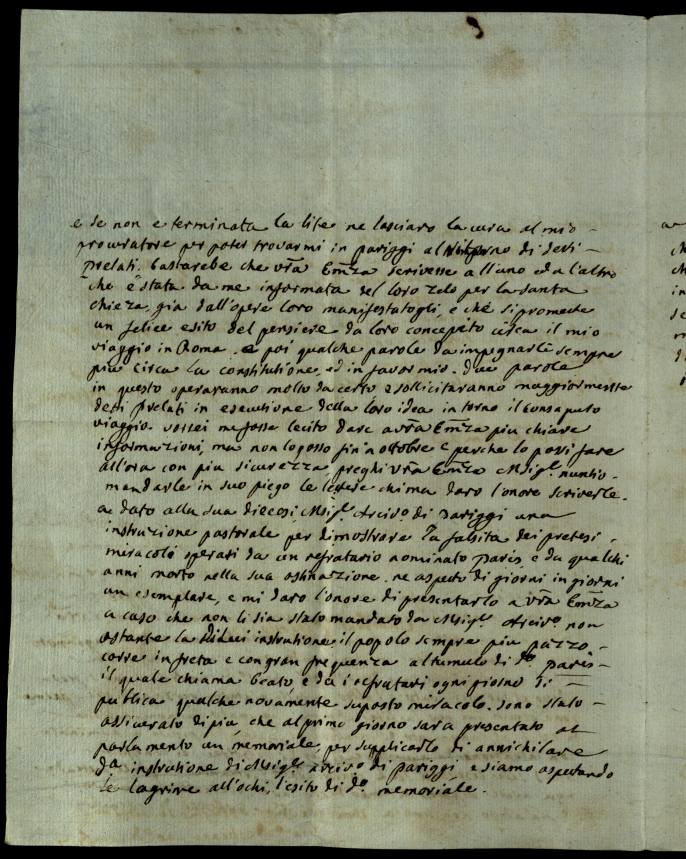 e se non e terminata la lite ne lasciaro la cura al mio -
procuratore per poter trovarmi in pariggi al ritorno di detti -
prelati. bastarebe che vr̃a Em̃za scrivesse all'uno ed a l'altro
che è stata da me informata del loro zelo per la santa
chieza, gia dall'opere loro manifestatogli, e che si promette
un felice esito del pensiere da loro concepito circa il mio
viaggio in Roma. e poi qualche parole da impegnarli sempre
piu circa la constitutione, ed in favor mio. due parole
in questo operaranno molto da certo e sollicitaranno maggiormente
detti prelati in esecutione della loro idea intorno il consaputo
viaggio. vorrei me fosse lecito dare a vr̃a Em̃za piu chiare
informazioni, ma non lo posso fin'a ottobre e perche lo possi fare
all'ora con piu sicurezza, preghi vr̃a Em̃za Msigr. nuntio
mandarle in suo piego le lettere chi ma daro l'onore scriverle.
a dato alla sua diecesi Msigr. Arcivo. di pariggi una
instruzione pastorale per dimostrare la falsita dei pretesi -
miracoli operati da un refratario nominato paris, e da qualchi
anni morto nella sua ostinazione. ne aspetto di giorni in giorni
un esemplare, e mi daro l'onore di presentarlo a vr̃a Em̃za
a caso che non li sia stato mandato da Msigr. Arcivo. non
ostante la instrutione il popolo sempre piu pazzo -
corre in freta e con gran frequenza al tumulo di do. paris -
il quale chiama beato, e da i refratari ogni giorno si -
publica qualche novamente suposto miracolo. sono stato -
assicurato di piu, che al primo giorno sara presentato al
parlamento un memoriale, per supplicarlo di annichilare
da. instrutione di Msigr. arcivo. di pariggi, e siamo aspettando
le lagrime all'ochi, l'esito di do. memoriale.